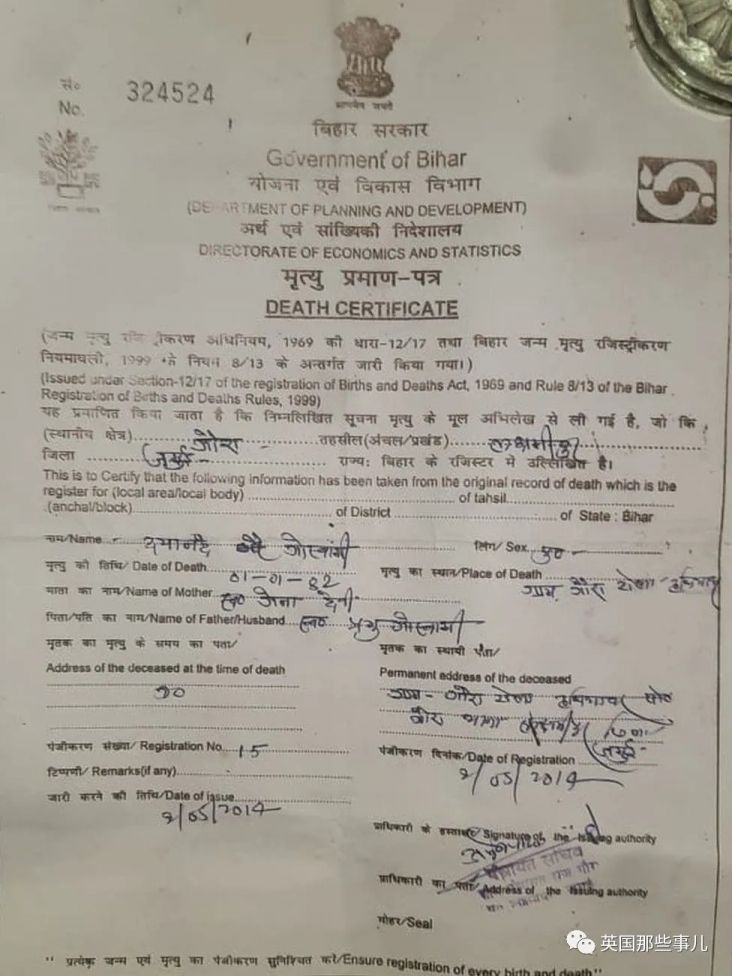 सं०
No. 324524
सत्यमेव जयते
बिहार सरकार
Government of Bihar
योजना एवं विकास विभाग
(DEPARTMENT OF PLANNING AND DEVELOPMENT)
अर्थ एवं सांख्यिकी निदेशालय
DIRECTORATE OF ECONOMICS AND STATISTICS
मृत्यु प्रमाण-पत्र
DEATH CERTIFICATE
(जन्म मृत्यु रजिस्ट्रीकरण अधिनियम, 1969 की धारा-12/17 तथा बिहार जन्म मृत्यु रजिस्ट्रीकरण
नियमावली, 1999 के नियम 8/13 के अन्तर्गत जारी किया गया।)
(Issued under Section-12/17 of the registration of Births and Deaths Act, 1969 and Rule 8/13 of the Bihar
Registration of Births and Deaths Rules, 1999)
यह प्रमाणित किया जाता है कि निम्नलिखित सूचना मृत्यु के मूल अभिलेख से ली गई है, जो कि
(स्थानीय क्षेत्र) गौरा तहसील(अंचल/प्रखंड)
जिला जमुई राज्य: बिहार के रजिस्टर मे उल्लिखित है।
This is to Certify that the following information has been taken from the original record of death which is the
register for (local area/local body) of tahsil
(anchal/block) of District of State : Bihar
नाम/Name दयानंद गोस्वामी लिंग/ Sex पु०
मृत्यु की तिथि/ Date of Death 01-01-82 मृत्यु का स्थान/Place of Death ग्राम गौरा
माता का नाम/Name of Mother स्व० जेना देवी
पिता/पति का नाम/Name of Father/Husband स्व० प्रभु गोस्वामी
मृतक का मृत्यु के समय का पता/
Address of the deceased at the time of death
मृतक का स्थायी पता/
Permanent address of the deceased
ग्राम- गौरा
जमुई
पंजीकरण संख्या/ Registration No. 15
पंजीकरण दिनांक/Date of Registration
2/05/2014
टिप्पणी/ Remarks(if any)
जारी करने की तिथि/Date of issue
2/05/2014
प्राधिकारी के हस्ताक्षर/ Signature of the Issuing authority
पंचायत सचिव
प्राधिकारी का पता/ Address of the Issuing authority
मोहर/Seal
" प्रत्येक जन्म एवं मृत्यु का पंजीकरण सुनिश्चित करें/Ensure registration of every birth and death"
英国那些事儿